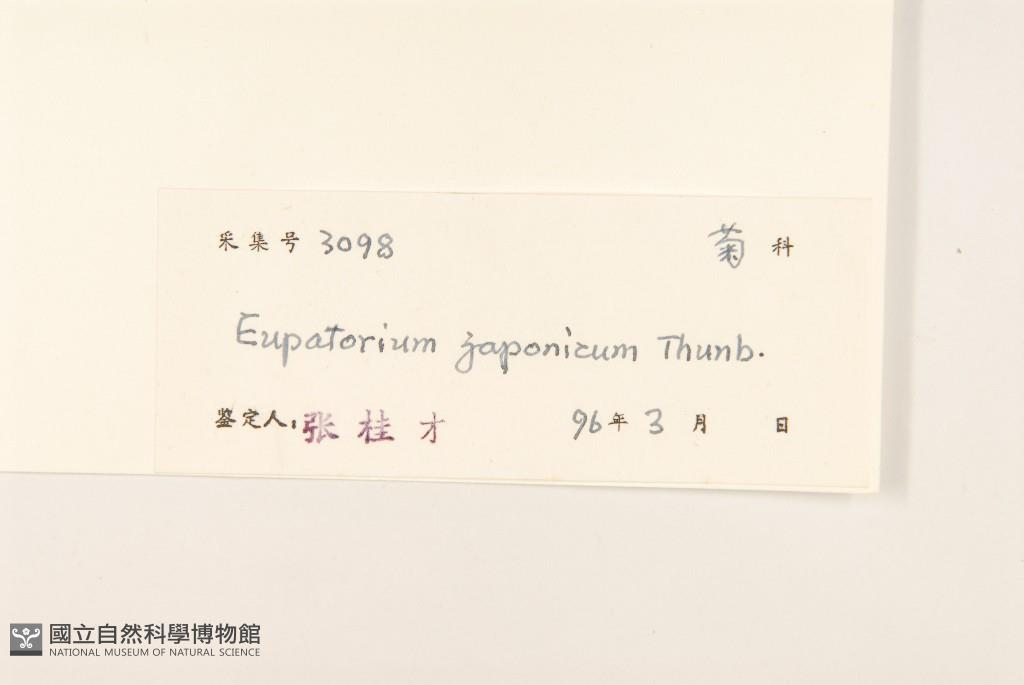 采集号 3098 菊 科
Eupatorium japonicum Thunb.
鉴定人: 张桂才 96年3月 日
國立自然科學博物館
NATIONAL MUSEUM OF NATURAL SCIENCE